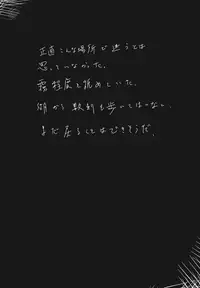 正直こんな場所で迷うとは
思っていなかった。
霧程度と眺めていた。
朝から数刻も歩いてはいない。
まだ戻ることはできそうだ。